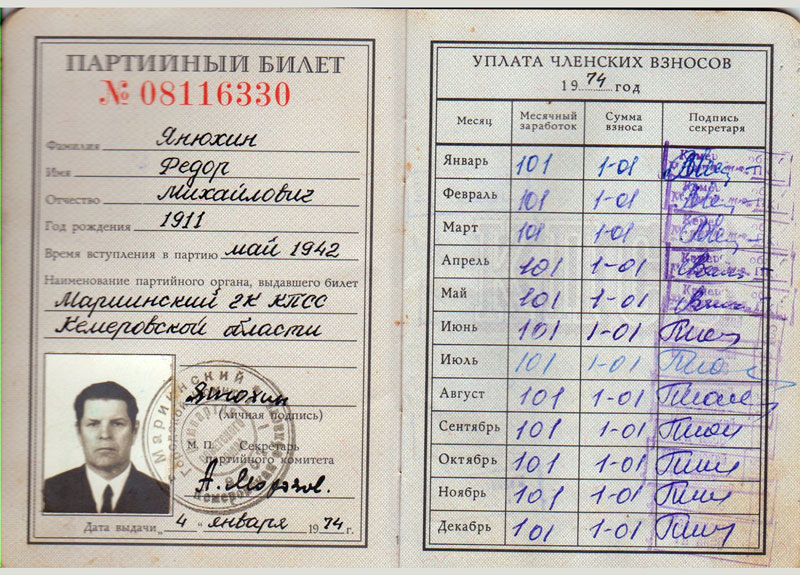 ПАРТИЙНЫЙ БИЛЕТ
№ 08116330
Фамилия Янюхин
Имя Федор
Отчество Михайлович
Год рождения 1911
Время вступления в партию май 1942
Наименование партийного органа, выдавшего билет
Мариинский ГК КПСС
Кемеровской области
(личная подпись)
М. П. Секретарь
партийного комитета
Дата выдачи „4“ января 1974 г.
УПЛАТА ЧЛЕНСКИХ ВЗНОСОВ
1974 год
Месяц Месячный заработок Сумма взноса Подпись секретаря
Январь 101 1-01
Февраль 101 1-01
Март 101 1-01
Апрель 101 1-01
Май 101 1-01
Июнь 101 1-01
Июль 101 1-01
Август 101 1-01
Сентябрь 101 1-01
Октябрь 101 1-01
Ноябрь 101 1-01
Декабрь 101 1-01